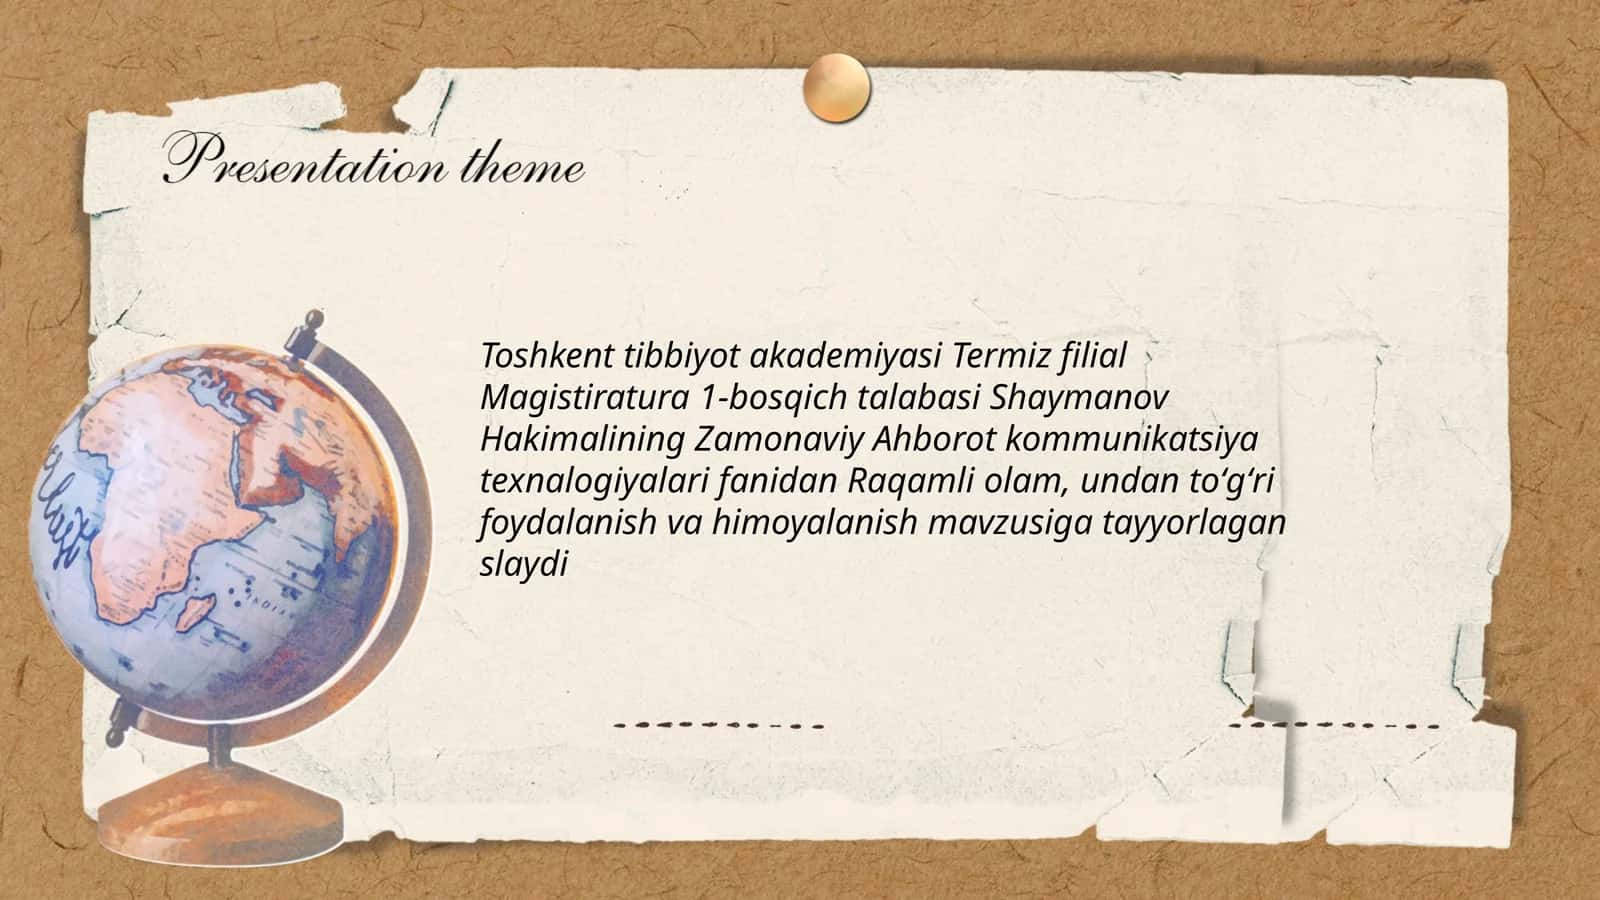 Presentation theme
Toshkent tibbiyot akademiyasi Termiz filial
Magistiratura 1-bosqich talabasi Shaymanov
Hakimalining Zamonaviy Ahborot kommunikatsiya
texnalogiyalari fanidan Raqamli olam, undan to‘g‘ri
foydalanish va himoyalanish mavzusiga tayyorlagan
slaydi